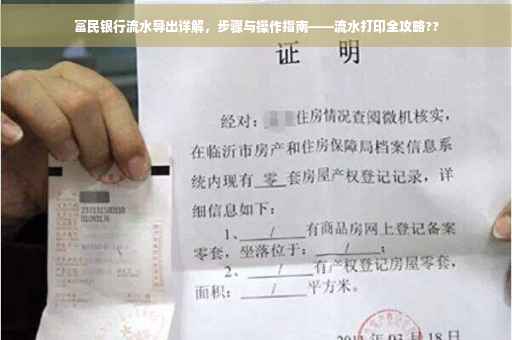 富民银行流水导出详解，步骤与操作指南——流水打印全攻略??
证 明
经对：住房情况查阅微机核实，
在临沂市房产和住房保障局档案信息系
统内现有 零 套房屋产权登记记录，详
细信息如下：
1、 / 有商品房网上登记备案
零套，坐落位于： / ；
2、 / 有产权登记房屋零套，
面积： / 平方米。
03月18日